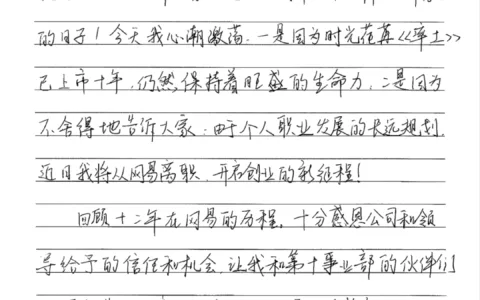 的日子！今天我心潮激荡.一是因为时光荏苒《率土》
已上市十年,仍然保持着旺盛的生命力;二是因为
不舍得地告诉大家:由于个人职业发展的长远规划,
近日我将从网易离职,开启创业的新征程!
回顾十二年在网易的历程,十分感恩公司和领
导给予的信任和机会,让我和第十事业部的伙伴们